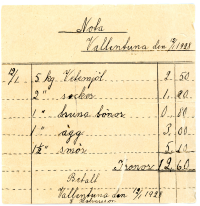 Nota
Vallentuna den 19/1 1928
19/1 5 kg Vetemjöl 2.50
2 " socker 1.20
1 " bruna bönor 0.80
1 " ägg 3.00
1½ " smör 5.10
Kronor 12.60
Betalt
Vallentuna den 19/1 1928